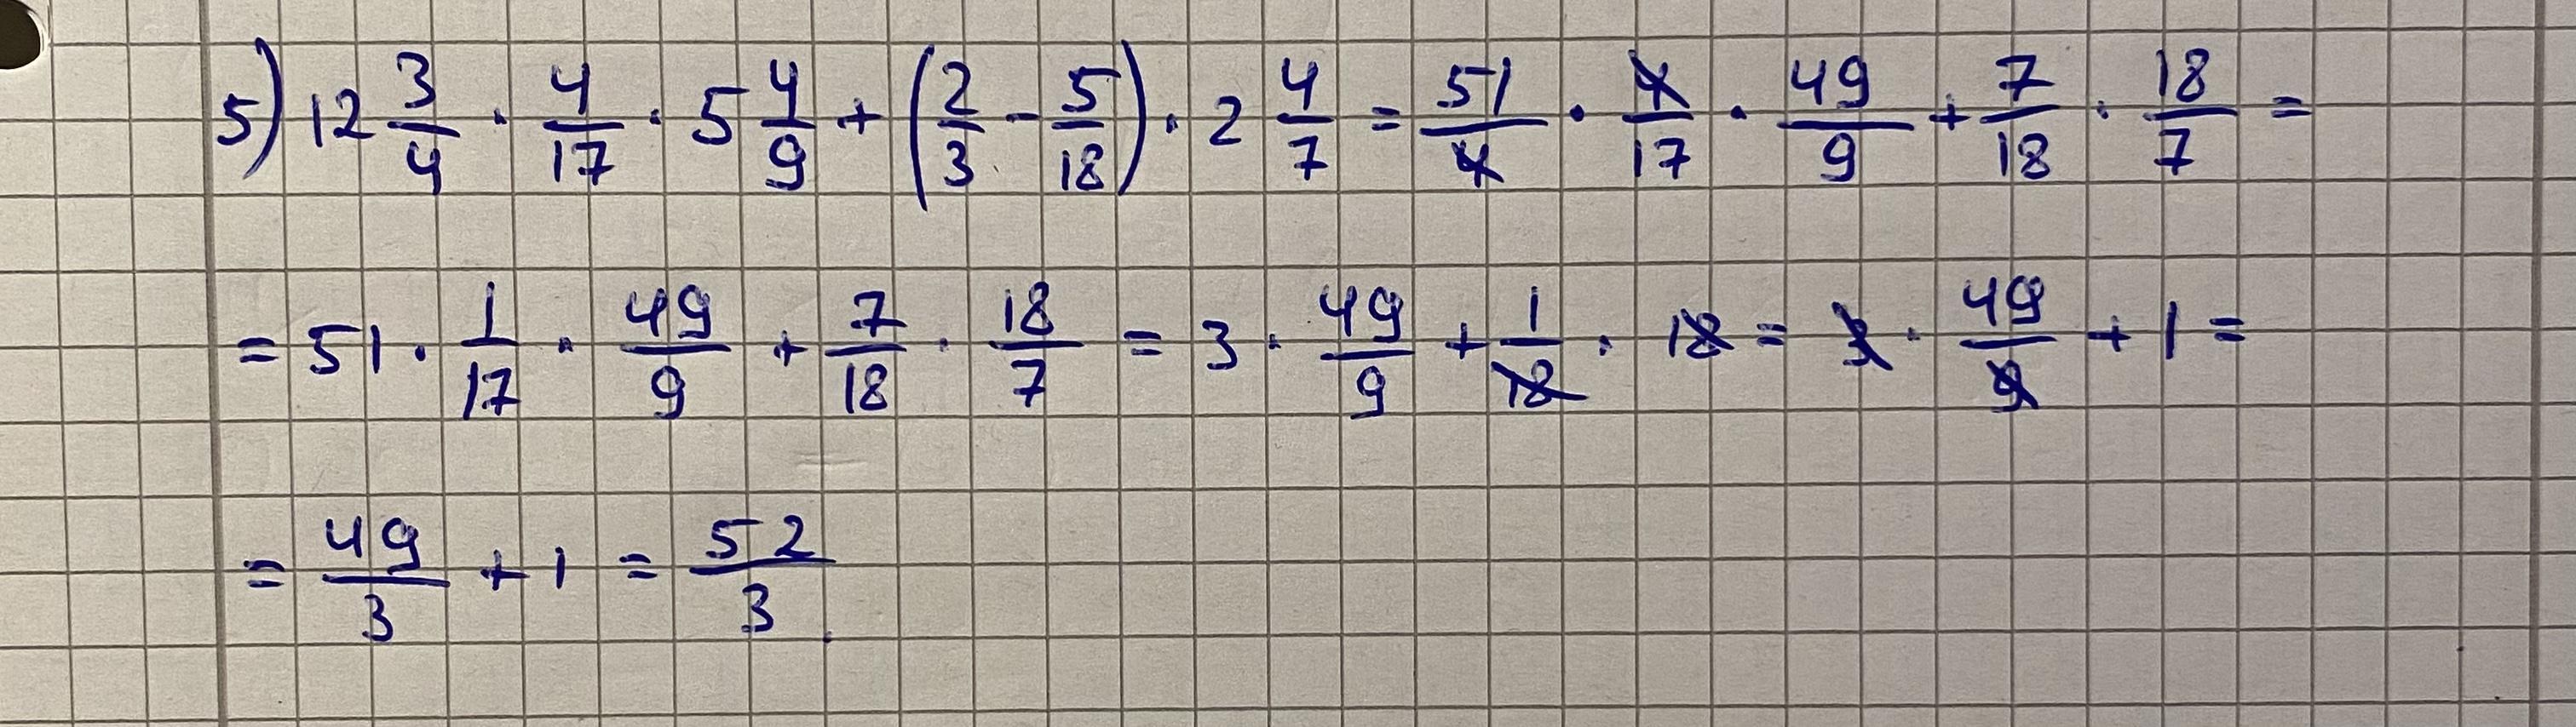 5) 12 3/4 · 4/17 · 5 4/9 + (2/3 - 5/18) · 2 4/7 = 51/4 · 4/17 · 49/9 + 7/18 · 18/7 =
= 51 · 1/17 · 49/9 + 7/18 · 18/7 = 3 · 49/9 + 1/18 · 18 = 3 · 49/9 + 1 =
= 49/3 + 1 = 52/3